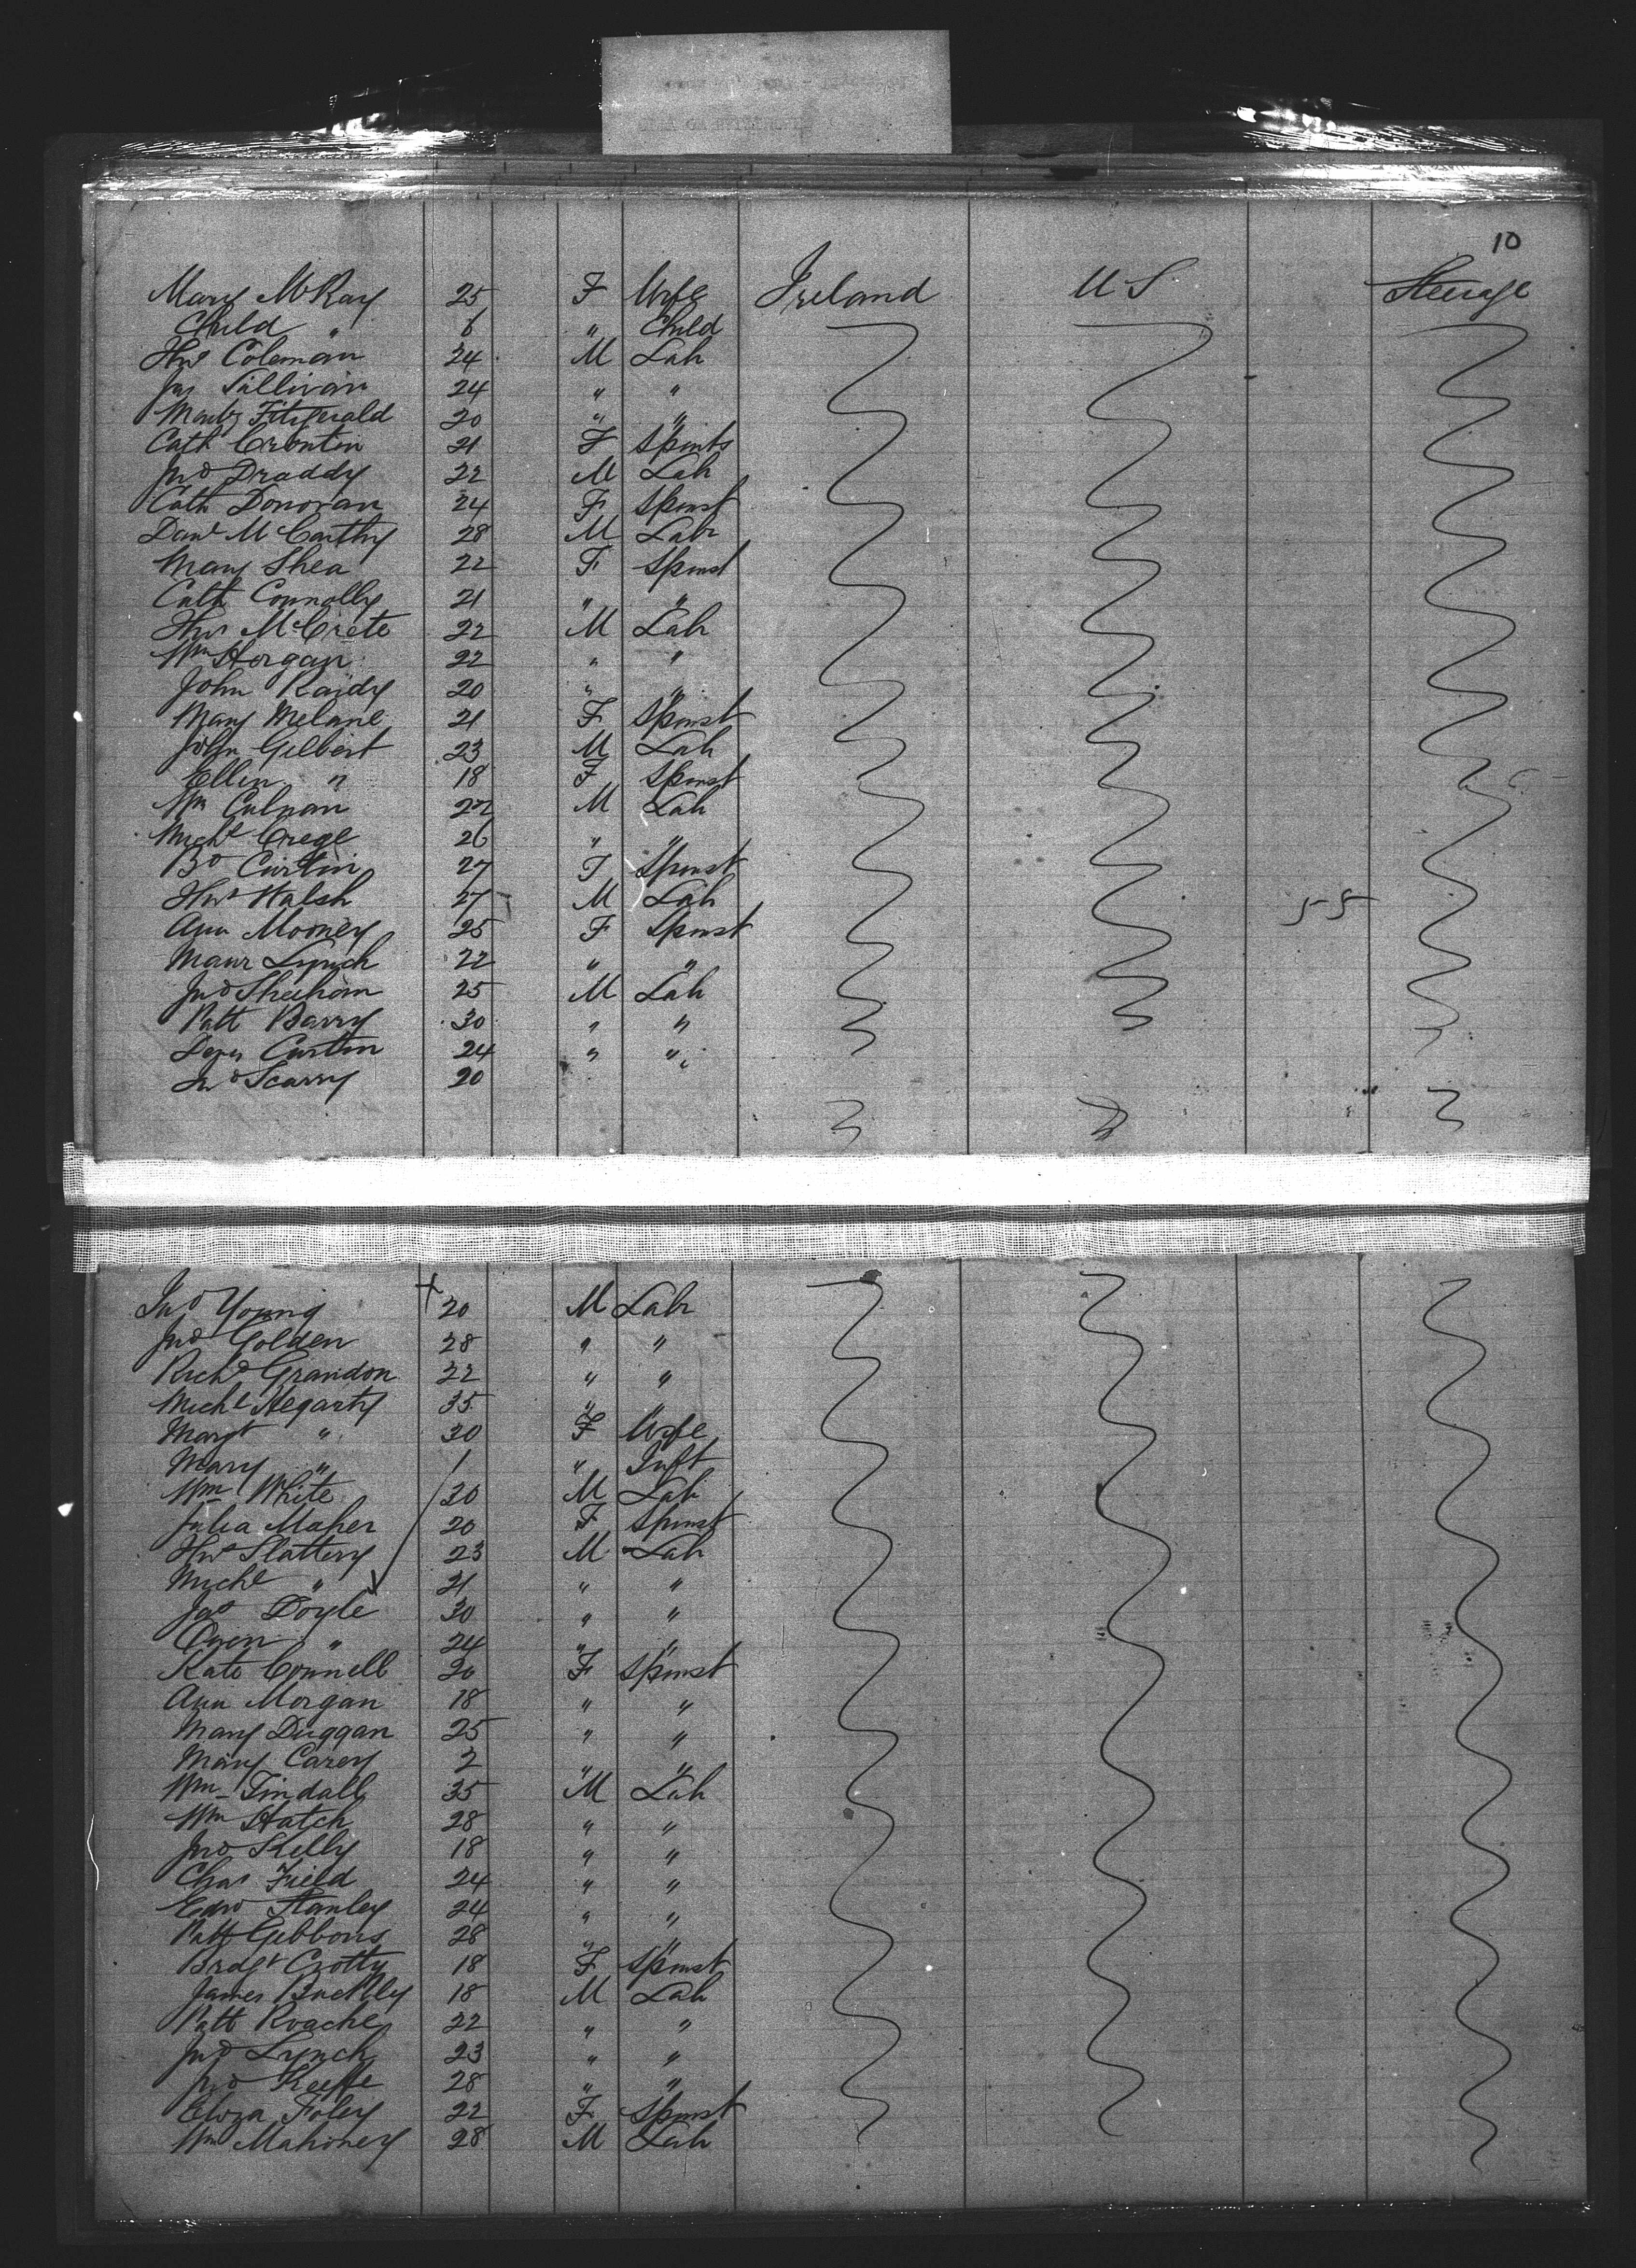 10
Mary McKay 25 F Wife Ireland US Steerage
Child " 6 " Child
Thos Coleman 24 M Lab
Jas Sullivan 24 " "
Fitzgerald 20 " "
Cath Crontin 21 F Spints
Jno Draddy 22 M Lab
Cath Donovan 24 F Spinst
Danl McCarthy 28 M Labr
Mary Shea 22 F Spinst
Cath Connolly 21 " "
Thos McCrete 22 M Lab
Wm Horgan 22 " "
John Raidy 20 " "
Mary Melane 21 F Spinst
John Gilbert 23 M Lab
Ellen " 18 F Spinst
Wm Culnan 22 M Lab
Michl Crege 26 " "
Bd Curtin 27 F Spinst
Thos Walsh 27 M Lab 55
Ann Mooney 25 F Spinst
Maur Lynch 22 " "
Jno Sheehan 25 M Lab
Patt Barry 30 " "
Curtin 24 " "
Jno Scarry 20
Jno Young + 20 M Labr
Jno Golden 28 " "
Richd Grandon 22 " "
Michl Hegarty 35 " "
Margt " 30 F Wife
Mary " 1 " Inft
Wm White 30 M Lab
Julia Maher 20 F Spinst
Thos Slattery 23 M Lab
Michl " 21 " "
Jas Doyle 30 " "
Owen " 24 " "
Kate Connell 20 F Spinst
Ann Morgan 18 " "
Mary Duggan 25 " "
Mary Carey 2 " "
Wm Tindall 35 M Lab
Wm Hatch 28 " "
Jno Kelly 18 " "
Chas Field 24 " "
Edwd Stanley 24 " "
Patt Gibbons 28 " "
Bridgt Crotty 18 F Spinst
James Buckley 18 M Lab
Patt Roache 22 " "
Jno Lynch 23 " "
Jno Keeffe 28 " "
Eliza Foley 22 F Spinst
Wm Mahoney 28 M Lab